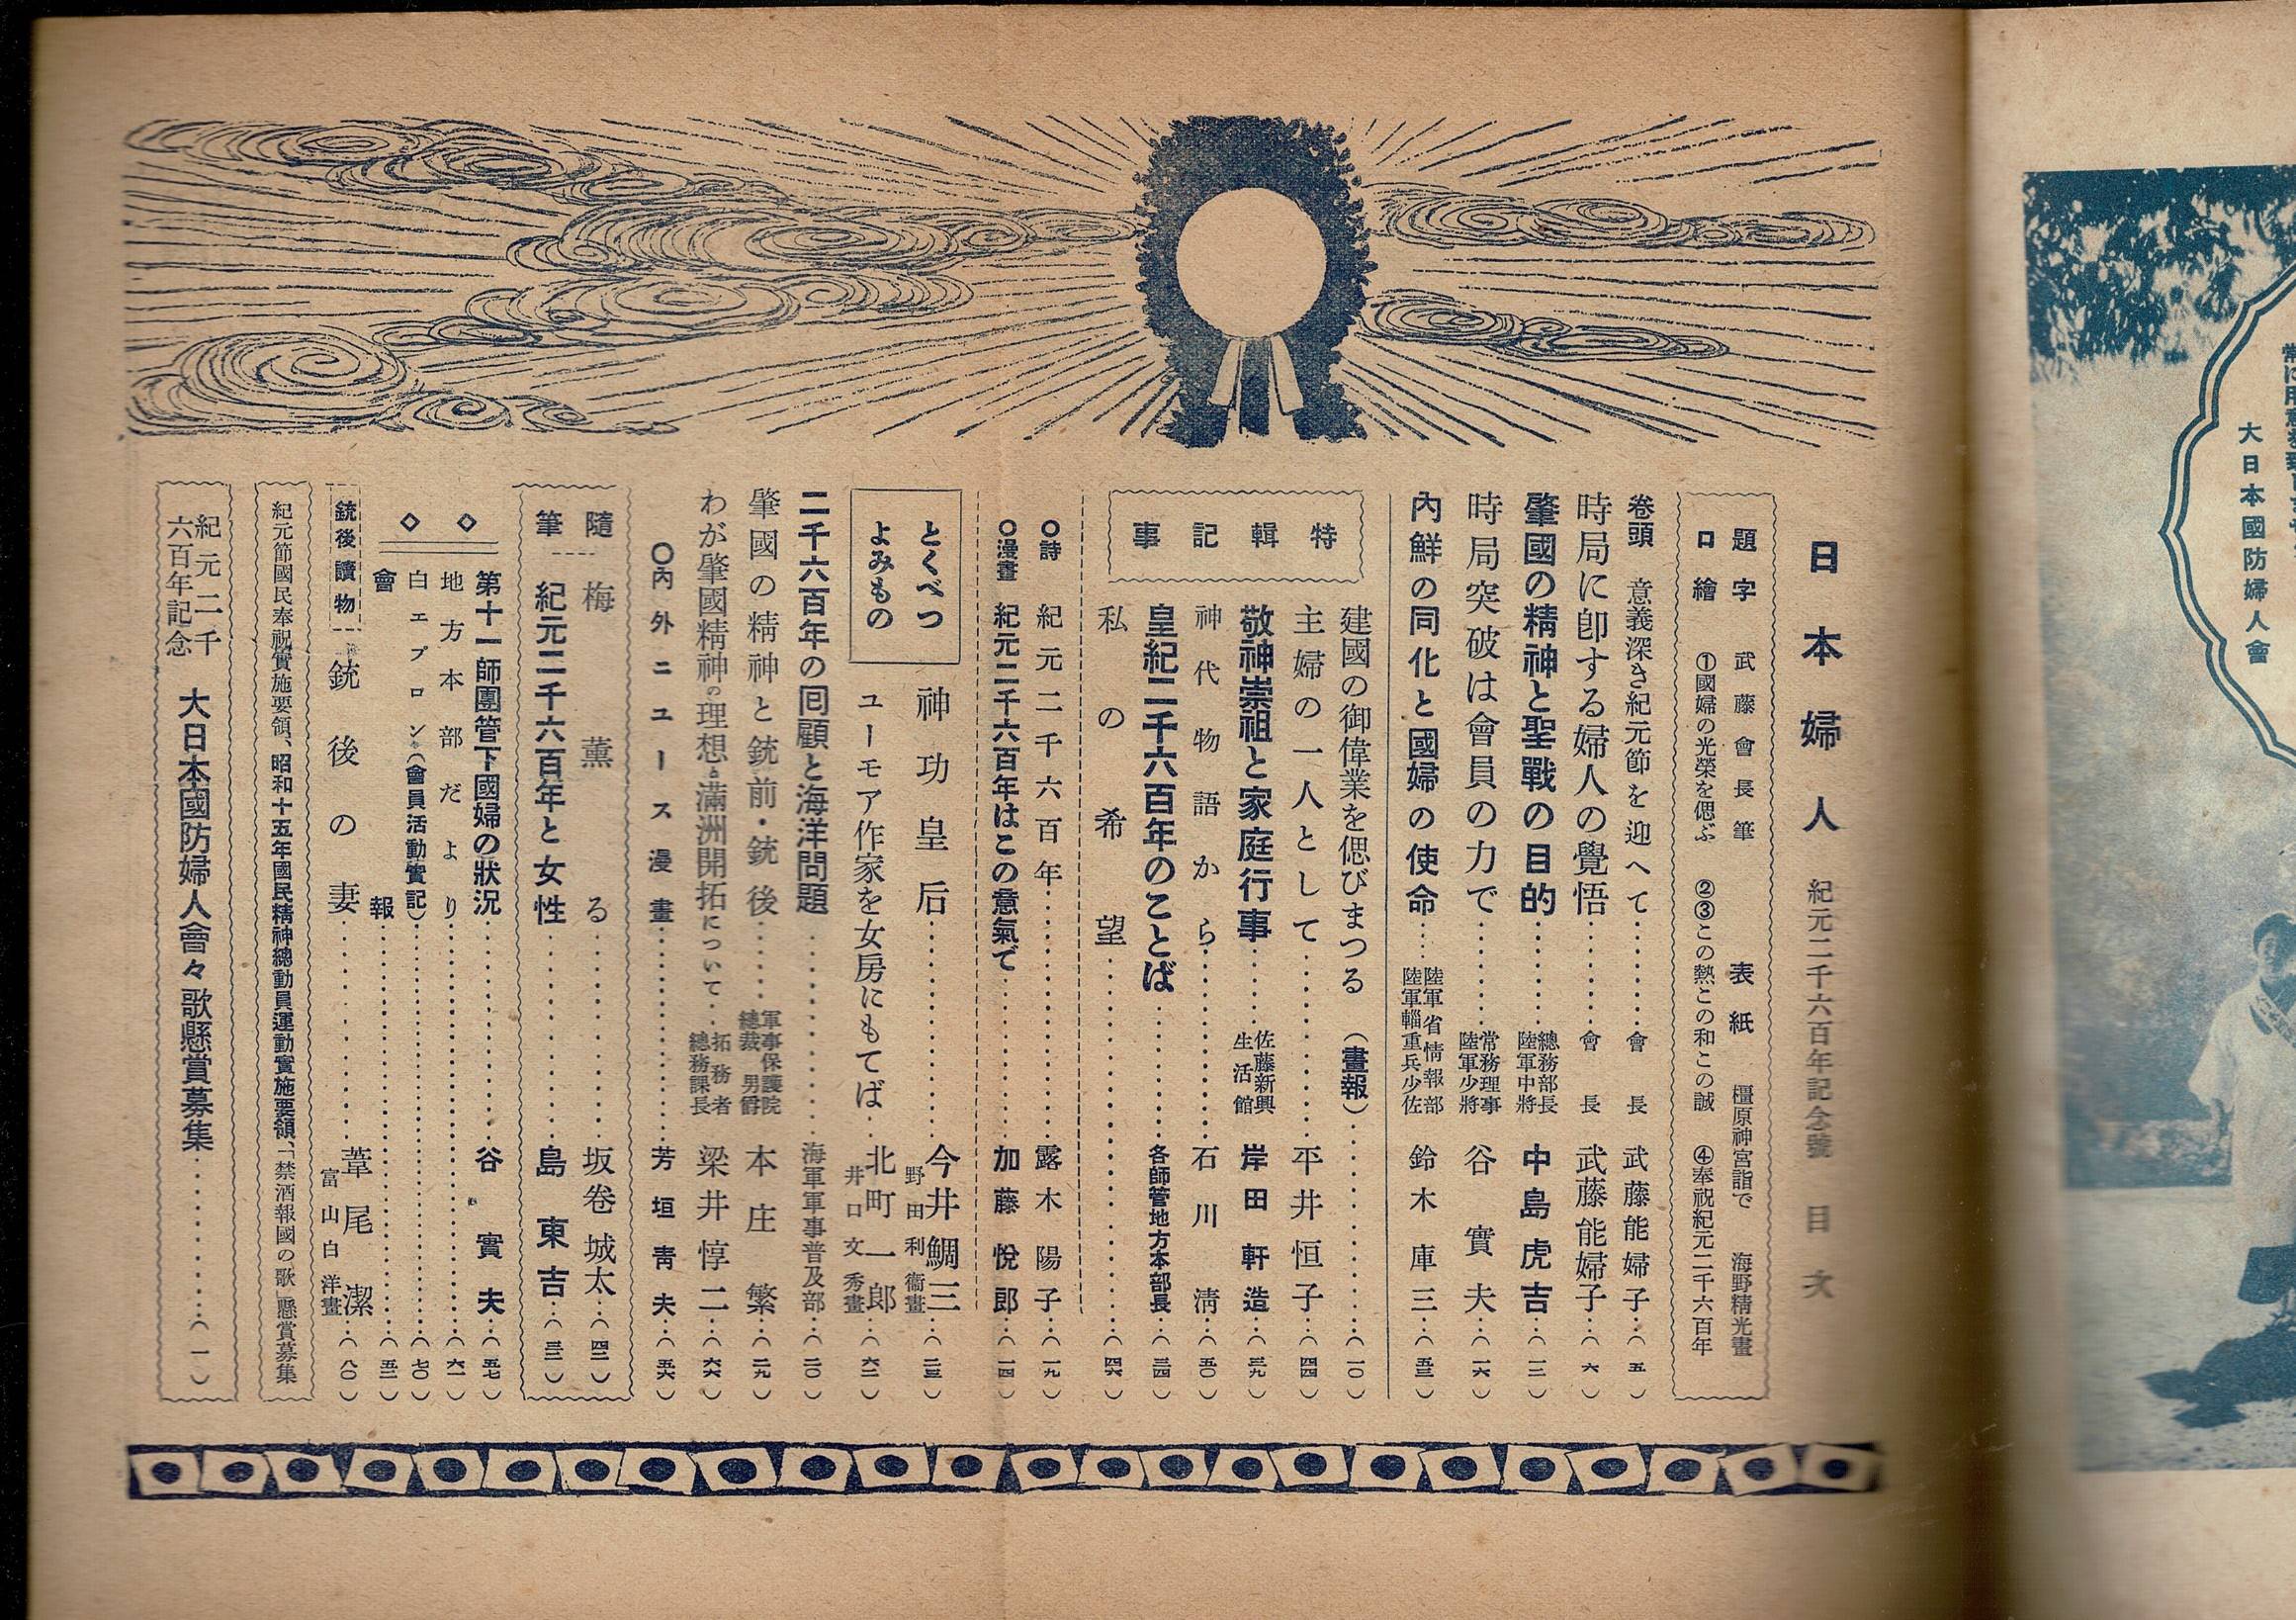 大日本國防婦人會
日本婦人 紀元二千六百年記念號 目次
題字 武藤會長筆 表紙 橿原神宮詣で 海野精光畫
口繪 ①國婦の光榮を偲ぶ ②③この熱この和この誠 ④奉祝紀元二千六百年
卷頭 意義深き紀元節を迎へて……會長 武藤能婦子…(五)
時局に卽する婦人の覺悟……會長 武藤能婦子…(六)
肇國の精神と聖戰の目的……總務部長 陸軍中將 中島虎吉…(一二)
時局突破は會員の力で……常務理事 陸軍少將 谷實夫…(一六)
內鮮の同化と國婦の使命……陸軍省情報部 陸軍輜重兵少佐 鈴木庫三…(五三)
特輯記事
建國の御偉業を偲びまつる(畫報)……(一〇)
主婦の一人として……平井恒子…(四四)
敬神崇祖と家庭行事……佐藤新興 生活館 岸田軒造…(三九)
神代物語から……石川淸…(五〇)
皇紀二千六百年のことば……各師管地方本部長…(三四)
私の希望……(四六)
○詩 紀元二千六百年……露木陽子…(一九)
○漫畫 紀元二千六百年はこの意氣で……加藤悅郎…(一四)
とくべつよみもの
神功皇后……今井鯛三 野田利衞畫…(二三)
ユーモア作家を女房にもてば…北町一郎 井口文秀畫…(六二)
二千六百年の囘顧と海洋問題……海軍軍事普及部…(二〇)
肇國の精神と銃前・銃後……軍事保護院總裁 男爵 本庄繁…(二九)
わが肇國精神の理想と滿洲開拓について…拓務者 總務課長 梁井惇二…(六六)
○內外ニユース漫畫……芳垣靑夫…(五六)
隨筆
梅薰る……坂卷城太…(四二)
紀元二千六百年と女性……島東吉…(三二)
◇第十一師團管下國婦の狀況……谷實夫…(五七)
地方本部だより……(六一)
◇白エプロン(會員活動實記)……(七〇)
會報……(五二)
銃後讀物 銃後の妻……葦尾潔 富山白洋畫…(八〇)
紀元節國民奉祝實施要領、昭和十五年國民精神總動員運動實施要領、「禁酒報國の歌」懸賞募集
紀元二千六百年記念 大日本國防婦人會々歌懸賞募集……(一)